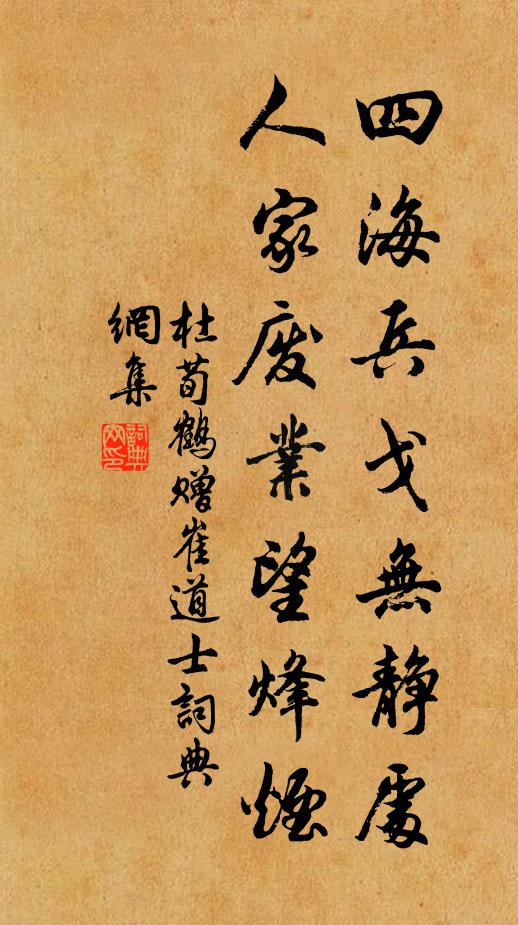 四海兵戈無静處
人家废業望烽煙
杜荀鶴赠崔道士詞典
網集
詞典網印